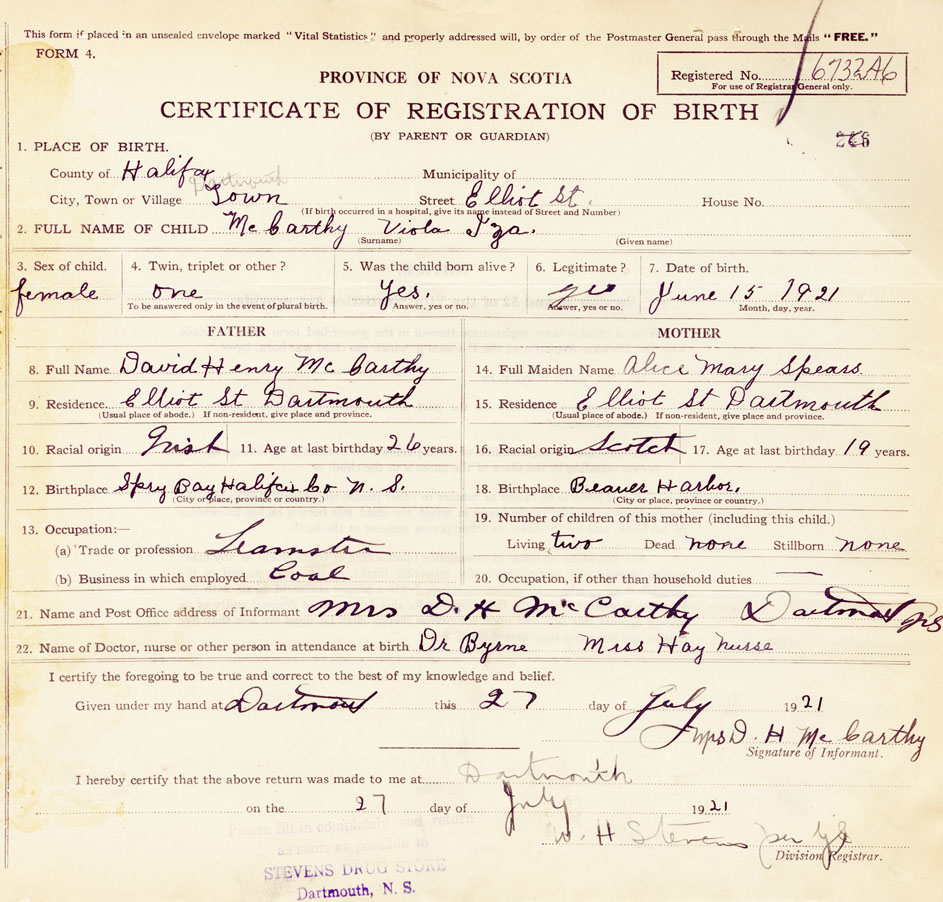 This form if placed in an unsealed envelope marked "Vital Statistics" and properly addressed will, by order of the Postmaster General pass through the Mails "FREE."
FORM 4.
PROVINCE OF NOVA SCOTIA
Registered No. 6732A6
For use of Registrar General only.
CERTIFICATE OF REGISTRATION OF BIRTH
(BY PARENT OR GUARDIAN)
1. PLACE OF BIRTH.
County of Halifax Municipality of
Dartmouth
City, Town or Village Town Street Elliot St. House No.
(If birth occurred in a hospital, give its name instead of Street and Number)
2. FULL NAME OF CHILD McCarthy Viola Iza.
(Surname) (Given name)
3. Sex of child. 4. Twin, triplet or other? 5. Was the child born alive? 6. Legitimate? 7. Date of birth.
female one Yes. yes June 15 1921
To be answered only in the event of plural birth. Answer, yes or no. Answer, yes or no. Month, day, year.
FATHER MOTHER
8. Full Name David Henry McCarthy 14. Full Maiden Name Alice Mary Spears
9. Residence. Elliot St Dartmouth 15. Residence Elliot St Dartmouth
(Usual place of abode.) If non-resident, give place and province. (Usual place of abode.) If non-resident, give place and province.
10. Racial origin Irish 11. Age at last birthday 26 years. 16. Racial origin Scotch 17. Age at last birthday 19 years.
12. Birthplace Spry Bay Halifax Co N. S. 18. Birthplace Beaver Harbor.
(City or place, province or country.) (City or place, province or country.)
19. Number of children of this mother (including this child.)
13. Occupation:—
(a) Trade or profession Teamster Living two Dead none Stillborn none
(b) Business in which employed Coal 20. Occupation, if other than household duties —
21. Name and Post Office address of Informant Mrs D. H McCarthy Dartmouth NS
22. Name of Doctor, nurse or other person in attendance at birth Dr Byrne Miss Hay Nurse
I certify the foregoing to be true and correct to the best of my knowledge and belief.
Given under my hand at Dartmouth this 27 day of July 1921
Mrs D. H McCarthy
Signature of Informant.
I hereby certify that the above return was made to me at Dartmouth
on the 27 day of July 1921
W. H Stevens per
Division Registrar.
Please fill in completely and return
as soon as possible to
STEVENS DRUG STORE
Dartmouth, N. S.